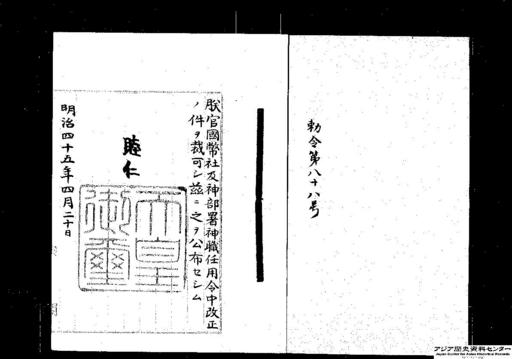 勅令第八十八号
朕官國幣社及神部署神職任用令中改正
ノ件ヲ裁可シ茲ニ之ヲ公布セシム
睦仁
天皇
御璽
明治四十五年四月二十日
アジア歴史資料センター
Japan Center for Asian Historical Records